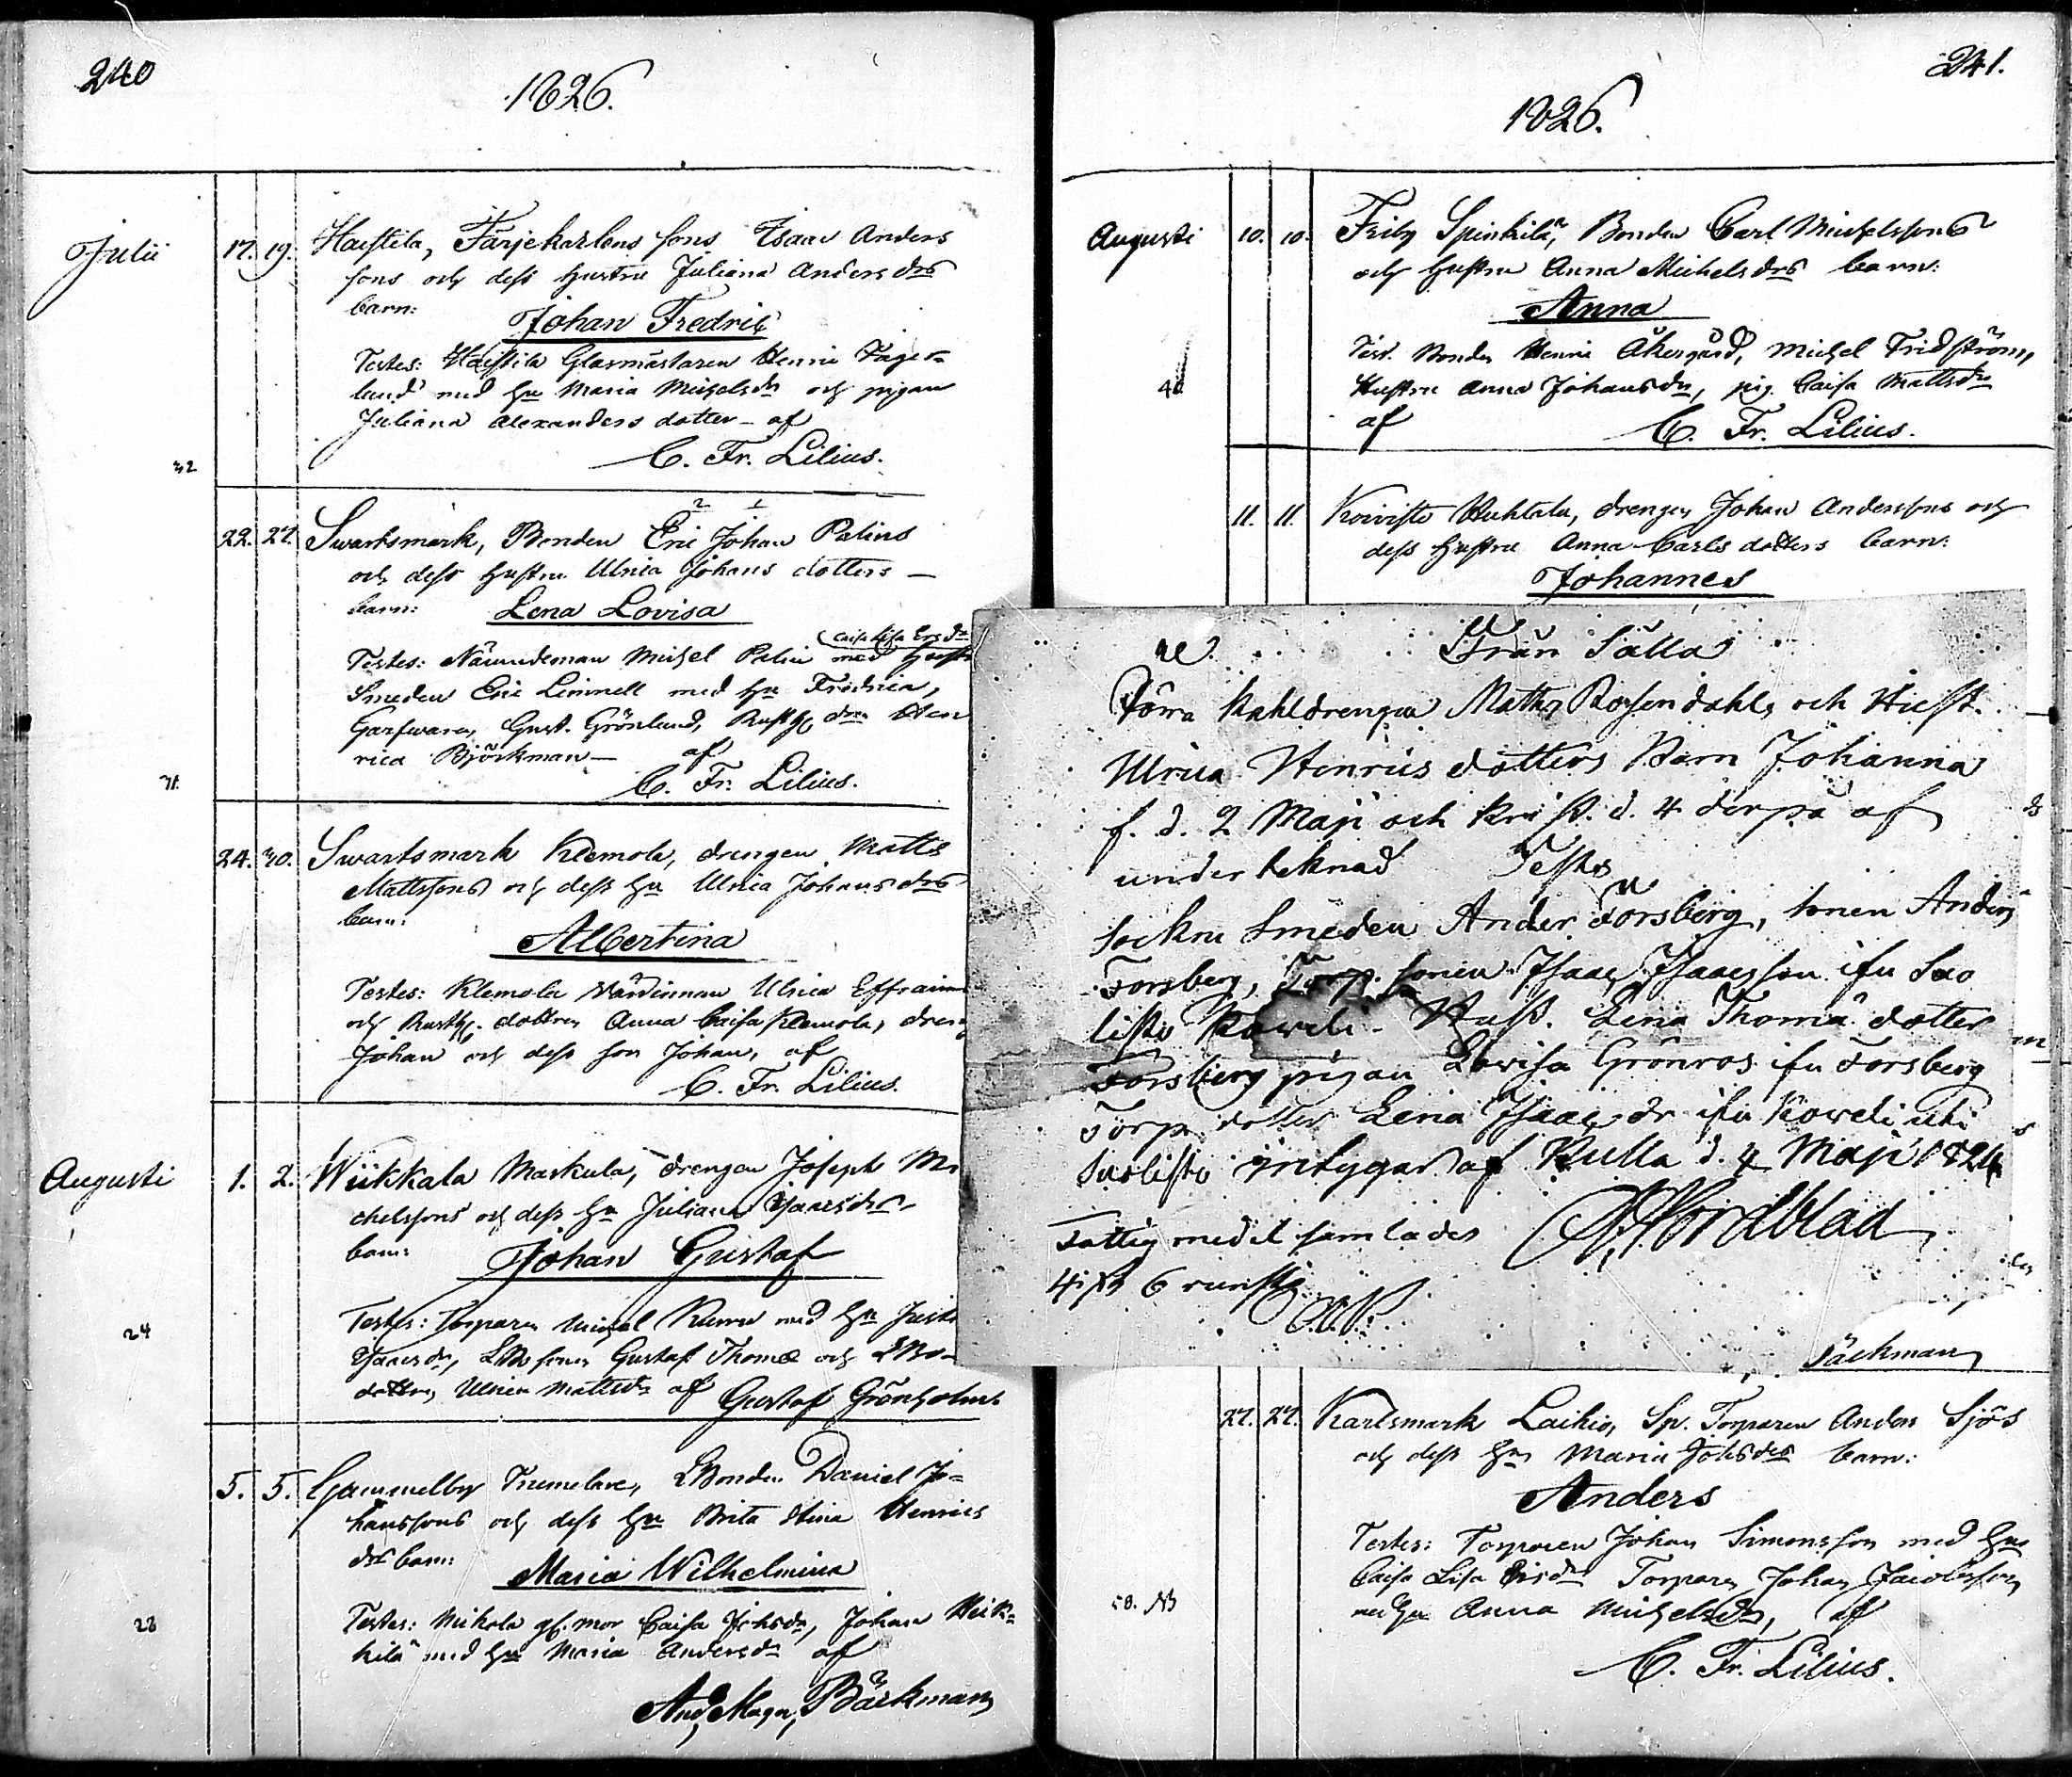 240
1826.
Julii
17. 19. Haistila, Färjekarlens sons Isaac Anders
sons och dess hustru Juliana Anders drs
barn:
Johan Fredric
Testes: Haistila Glasmästaren Henric Fager-
lund med hu Maria Michelsdr och pigan
Juliana Alexanders dotter - af
C. Fr. Lilius.
32
2 1
22. 27. Swartsmark, Bonden Eric Johan Palins
och dess hustru Ulrica Johans dotters -
barn: Lena Lovisa
Caisa Lisa Ersdr
Testes: Nämndeman Michel Palin med hust
Smeden Eric Linnell med hu Fredrica,
Garfwaren Gust. Grönlund, Rusth. dru Hen
rica Björkman - af
C. Fr. Lilius.
71.
24. 30. Swartsmark Klemola, drengen Matts
Mattssons och dess hu Ulrica Johans drs
barn:
Albertina
Testes: Klemola Värdinnan Ulrica Effraims
och Rusth. dottren Anna Caisa Klemola, dreng
Johan och dess son Johan, af
C. Fr. Lilius.
Augusti
1. 2. Wiikkala Markula, drengen Joseph Mi
chelssons och dess hu Juliana Isaacsdrs
barn:
Johan Gustaf
Testes: Torparen Michel med hu
Isaacsdr, LBd sonen Gustaf Thomæ och LBo-
dottren Ulrica Mattsdr af Gustaf Grönholm.
24
5. 5. Gammelby LBonden Daniel Jo-
hanssons och dess hu Brita Stina Henrics
drs barn:
Maria Wilhelmina
Testes: Mikola gl. mor Caisa Johsdr, Johan Heik-
kilä med hu Maria Andersdr af
And. Magn. Bäckman
28
241.
1826.
Augusti
10. 10. Friby Spinkilä, Bonden Carl Michelssons
och hustru Anna Michels drs barn:
Anna
Test. Bonden Henric Åkergård, Michel Fridström,
Hustru Anna Johansdr, pig. Caisa Mattsdr
af
C. Fr. Lilius.
40
11. 11. Koivisto Huhtala, drengen Johan Anderssons och
dess hustru Anna Carls dotters barn:
Johannes
Från Sälla
Förra Rahldrengen Matts Rosendahls och Hust.
Ulrica Henrics dotters Barn Johanna
f. d. 2 Maji och krist. d. 4 derpå af
undertecknad Testes
Sockne Smeden Anders Forsberg, sonen Anders
Forsberg, Torp. sonen Isaac Isaacsson ifrån Suo
listo Koweli - Hust. Lena Thomæ dotter
Forsberg pigan Lovisa Grönros ifrån Forsberg
Torp. dotter Lena Isaacs dr ifrån Koweli uti
Suolisto intygar af Kulla d. 4 Maji 1826
Fattig medel samlades
Nordblad
6 runst.
Bäckman
27. 27. Karlsmark Laikio, Sp. Torparen Anders Sjös
och dess hus Maria Johsdrs barn:
Anders
Testes: Torparen Johan Simonsson med hu
Caisa Lisa Ersdr Torparen Johan Jacobsson
med hu Anna Michelsdr, af
C. Fr. Lilius.
50. NB